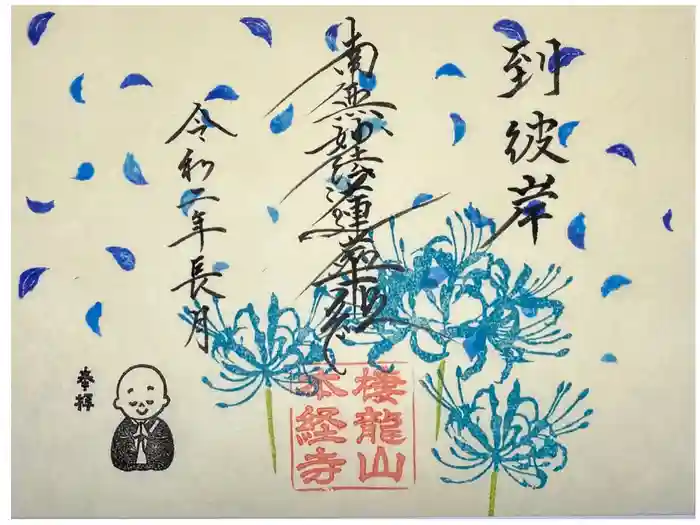 到彼岸
南無妙法蓮華経
令和二年長月
奉拝
棲龍山
本経寺